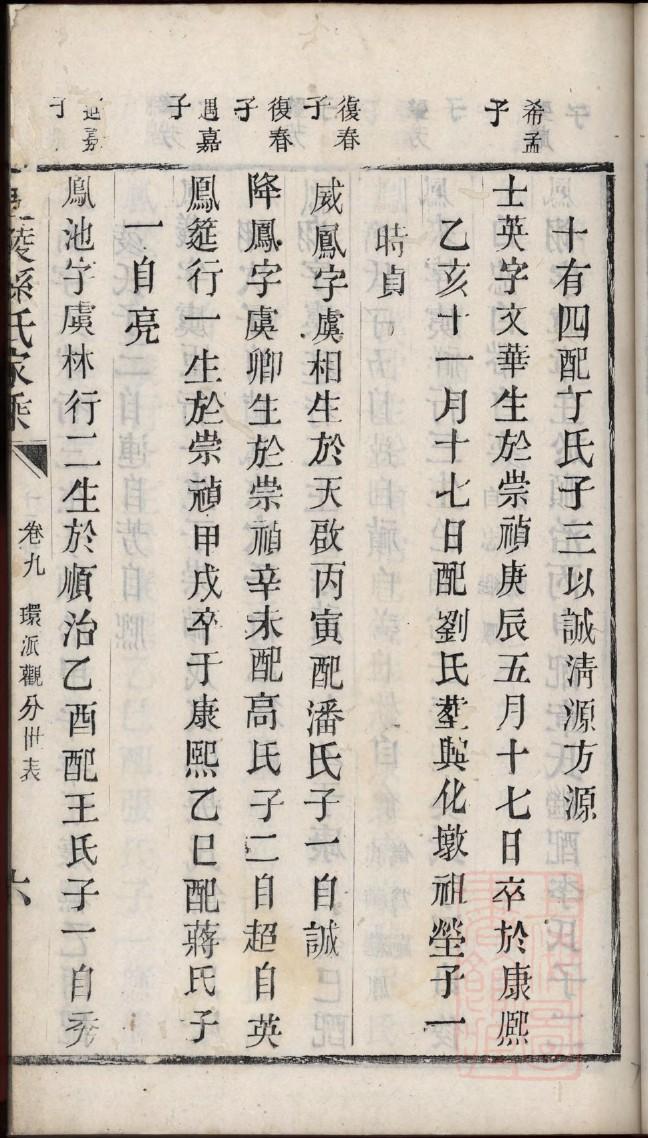 十有四配丁氏子三以誠淸源方源
希孟子
士英字文華生於崇禎庚辰五月十七日卒於康熙
乙亥十一月十七日配劉氏塟與化墩祖塋子一
時貞
復春子
威鳳字虞相生於天啟丙寅配潘氏子一自誠
復春子
降鳳字虞卿生於崇禎辛未配高氏子二自超自英
遇嘉子
鳳筵行一生於崇禎甲戌卒于康熙乙巳配蔣氏子
一自亮
遇嘉子
鳳池字虞林行二生於順治乙酉配王氏子一自秀
陵孫氏家乘
卷九
環派觀分世表
六